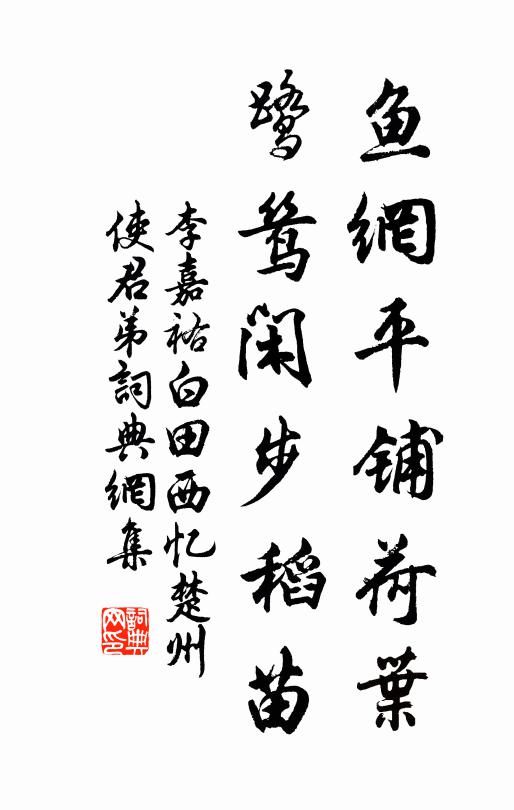 鱼網平铺荷葉
鹭鸶闲步稻苗
李嘉祐白田西忆楚州
使君弟詞典網集
詞典网印